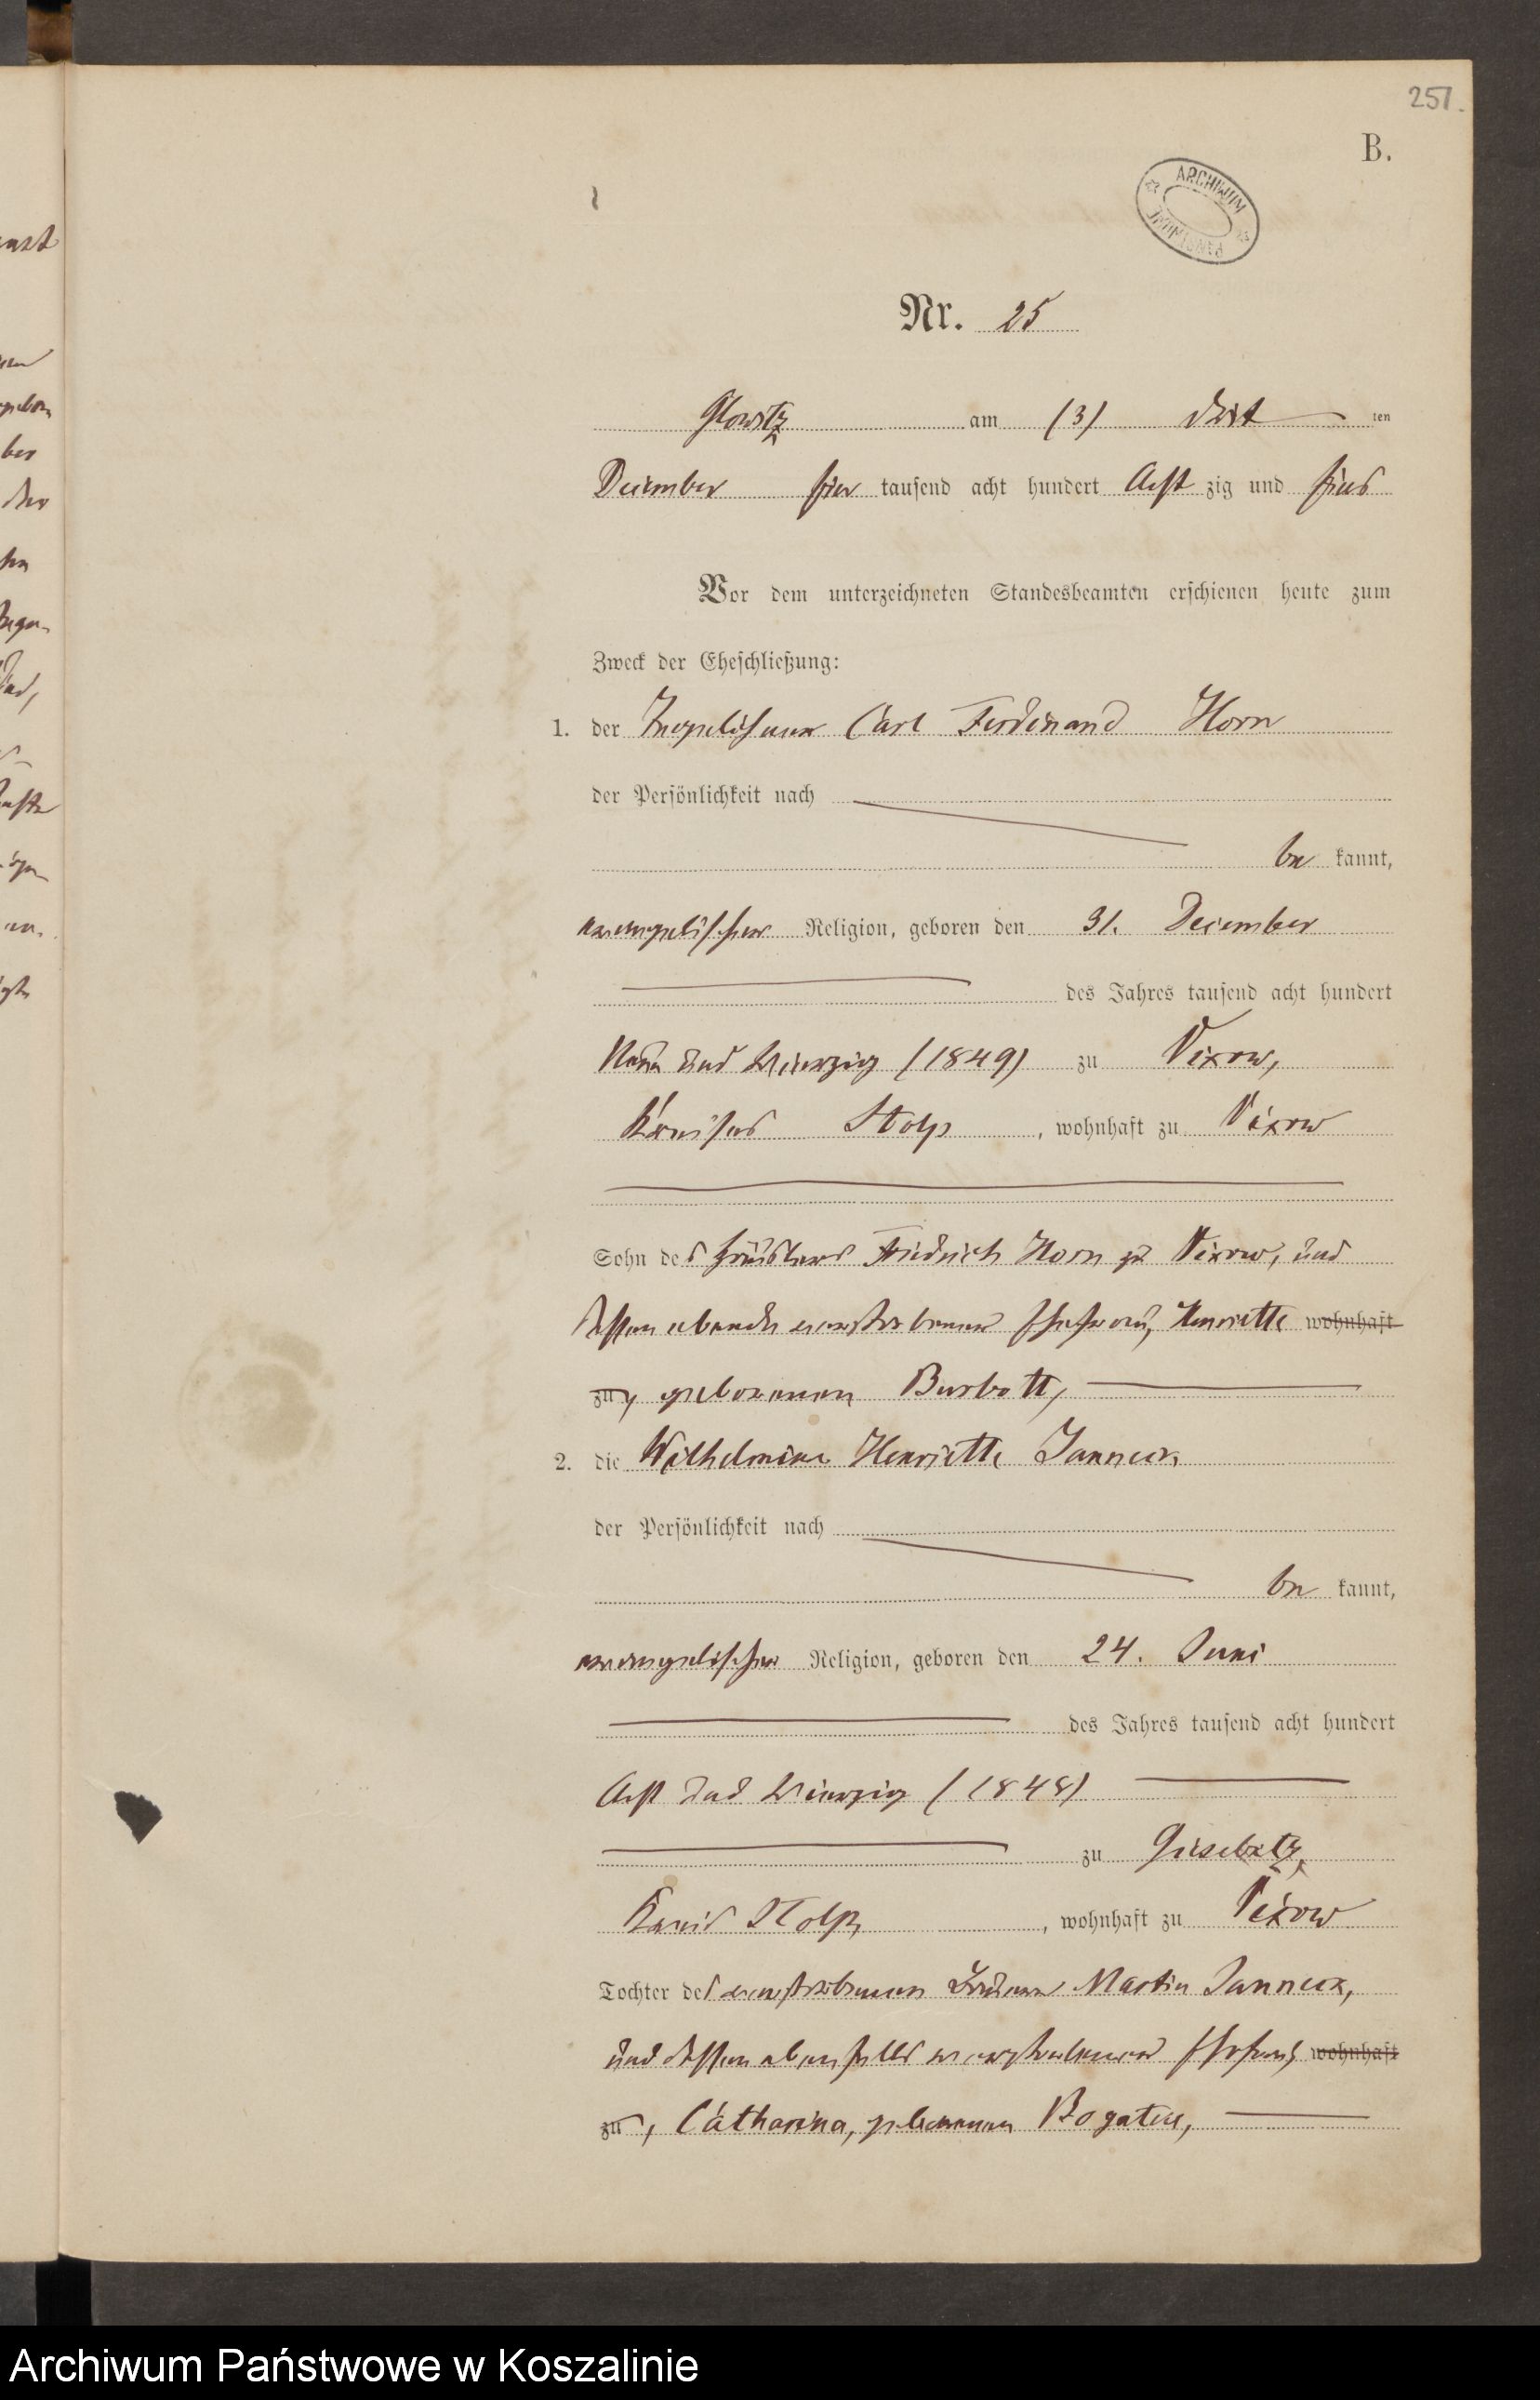 251.
B.
ARCHIWUM PAŃSTWOWE
Nr. 25
Glowitz am (3) dritten
December ein tausend acht hundert Achtzig und eins
Vor dem unterzeichneten Standesbeamten erschienen heute zum
Zweck der Eheschließung:
1. der Tagelöhner Carl Ferdinand Horn
der Persönlichkeit nach
be kannt,
evangelischer Religion, geboren den 31. December
des Jahres tausend acht hundert
Neun und vierzig (1849) zu Vixow,
Kreises Stolp, wohnhaft zu Vixow
Sohn des Häuslers Friedrich Horn zu Vixow, und
dessen verstorbener Ehefrau, Henriette wohnhaft
zu, geborenen Burbott,
2. die Wilhelmine Henriette Janneck
der Persönlichkeit nach
be kannt,
evangelischer Religion, geboren den 24. Juni
des Jahres tausend acht hundert
Acht und vierzig (1848)
zu Giesebitz,
Kreis Stolp, wohnhaft zu Vixow
Tochter des verstorbenen Martin Janneck,
und dessen ebenfalls verstorbener Ehefrau, wohnhaft
zu, Catharina, geborenen
Archiwum Państwowe w Koszalinie